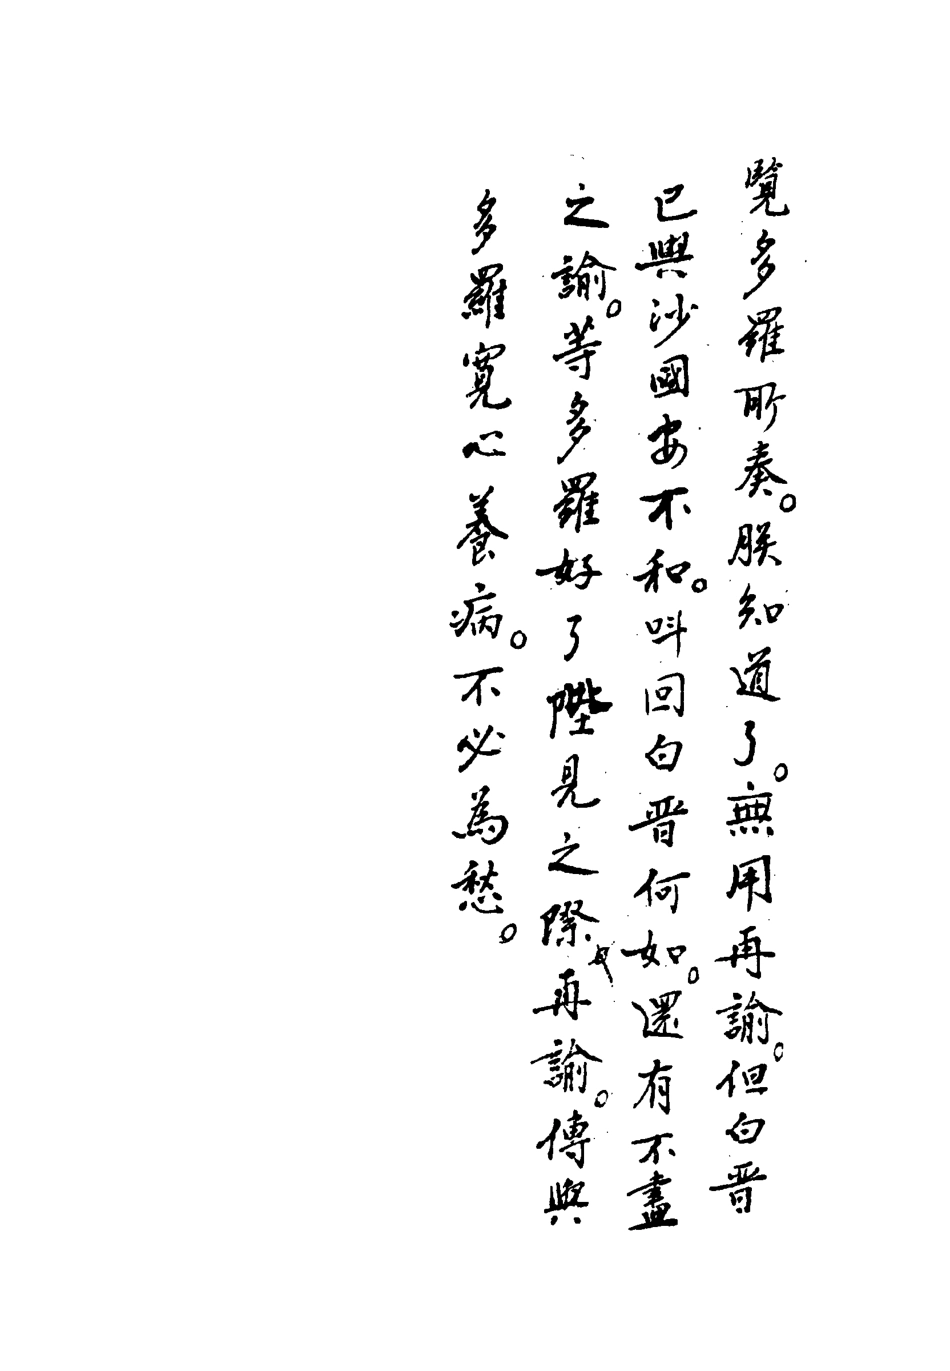 覽多羅所奏。朕知道了。無用再諭。但白晋
已與沙國安不和。叫回白晋何如。還有不盡
之諭。等多羅好了陛見之際再諭。傳與
多羅寬心養病。不必為愁。